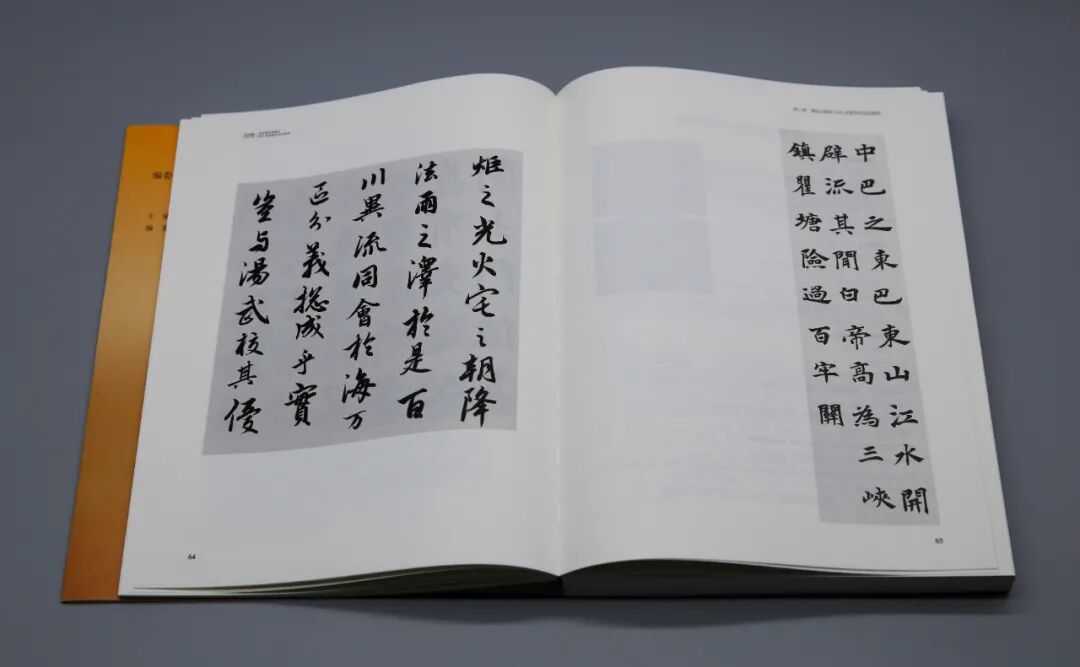 炬之光火宅之朝降
法雨之澤於是百
川異流同會於海万
区分義揔成乎實
豈与湯武校其優
64
中巴之東巴東山江水開
辟流其閒白帝高為三峽
鎮瞿塘險過百牢關
65
编委
主
编